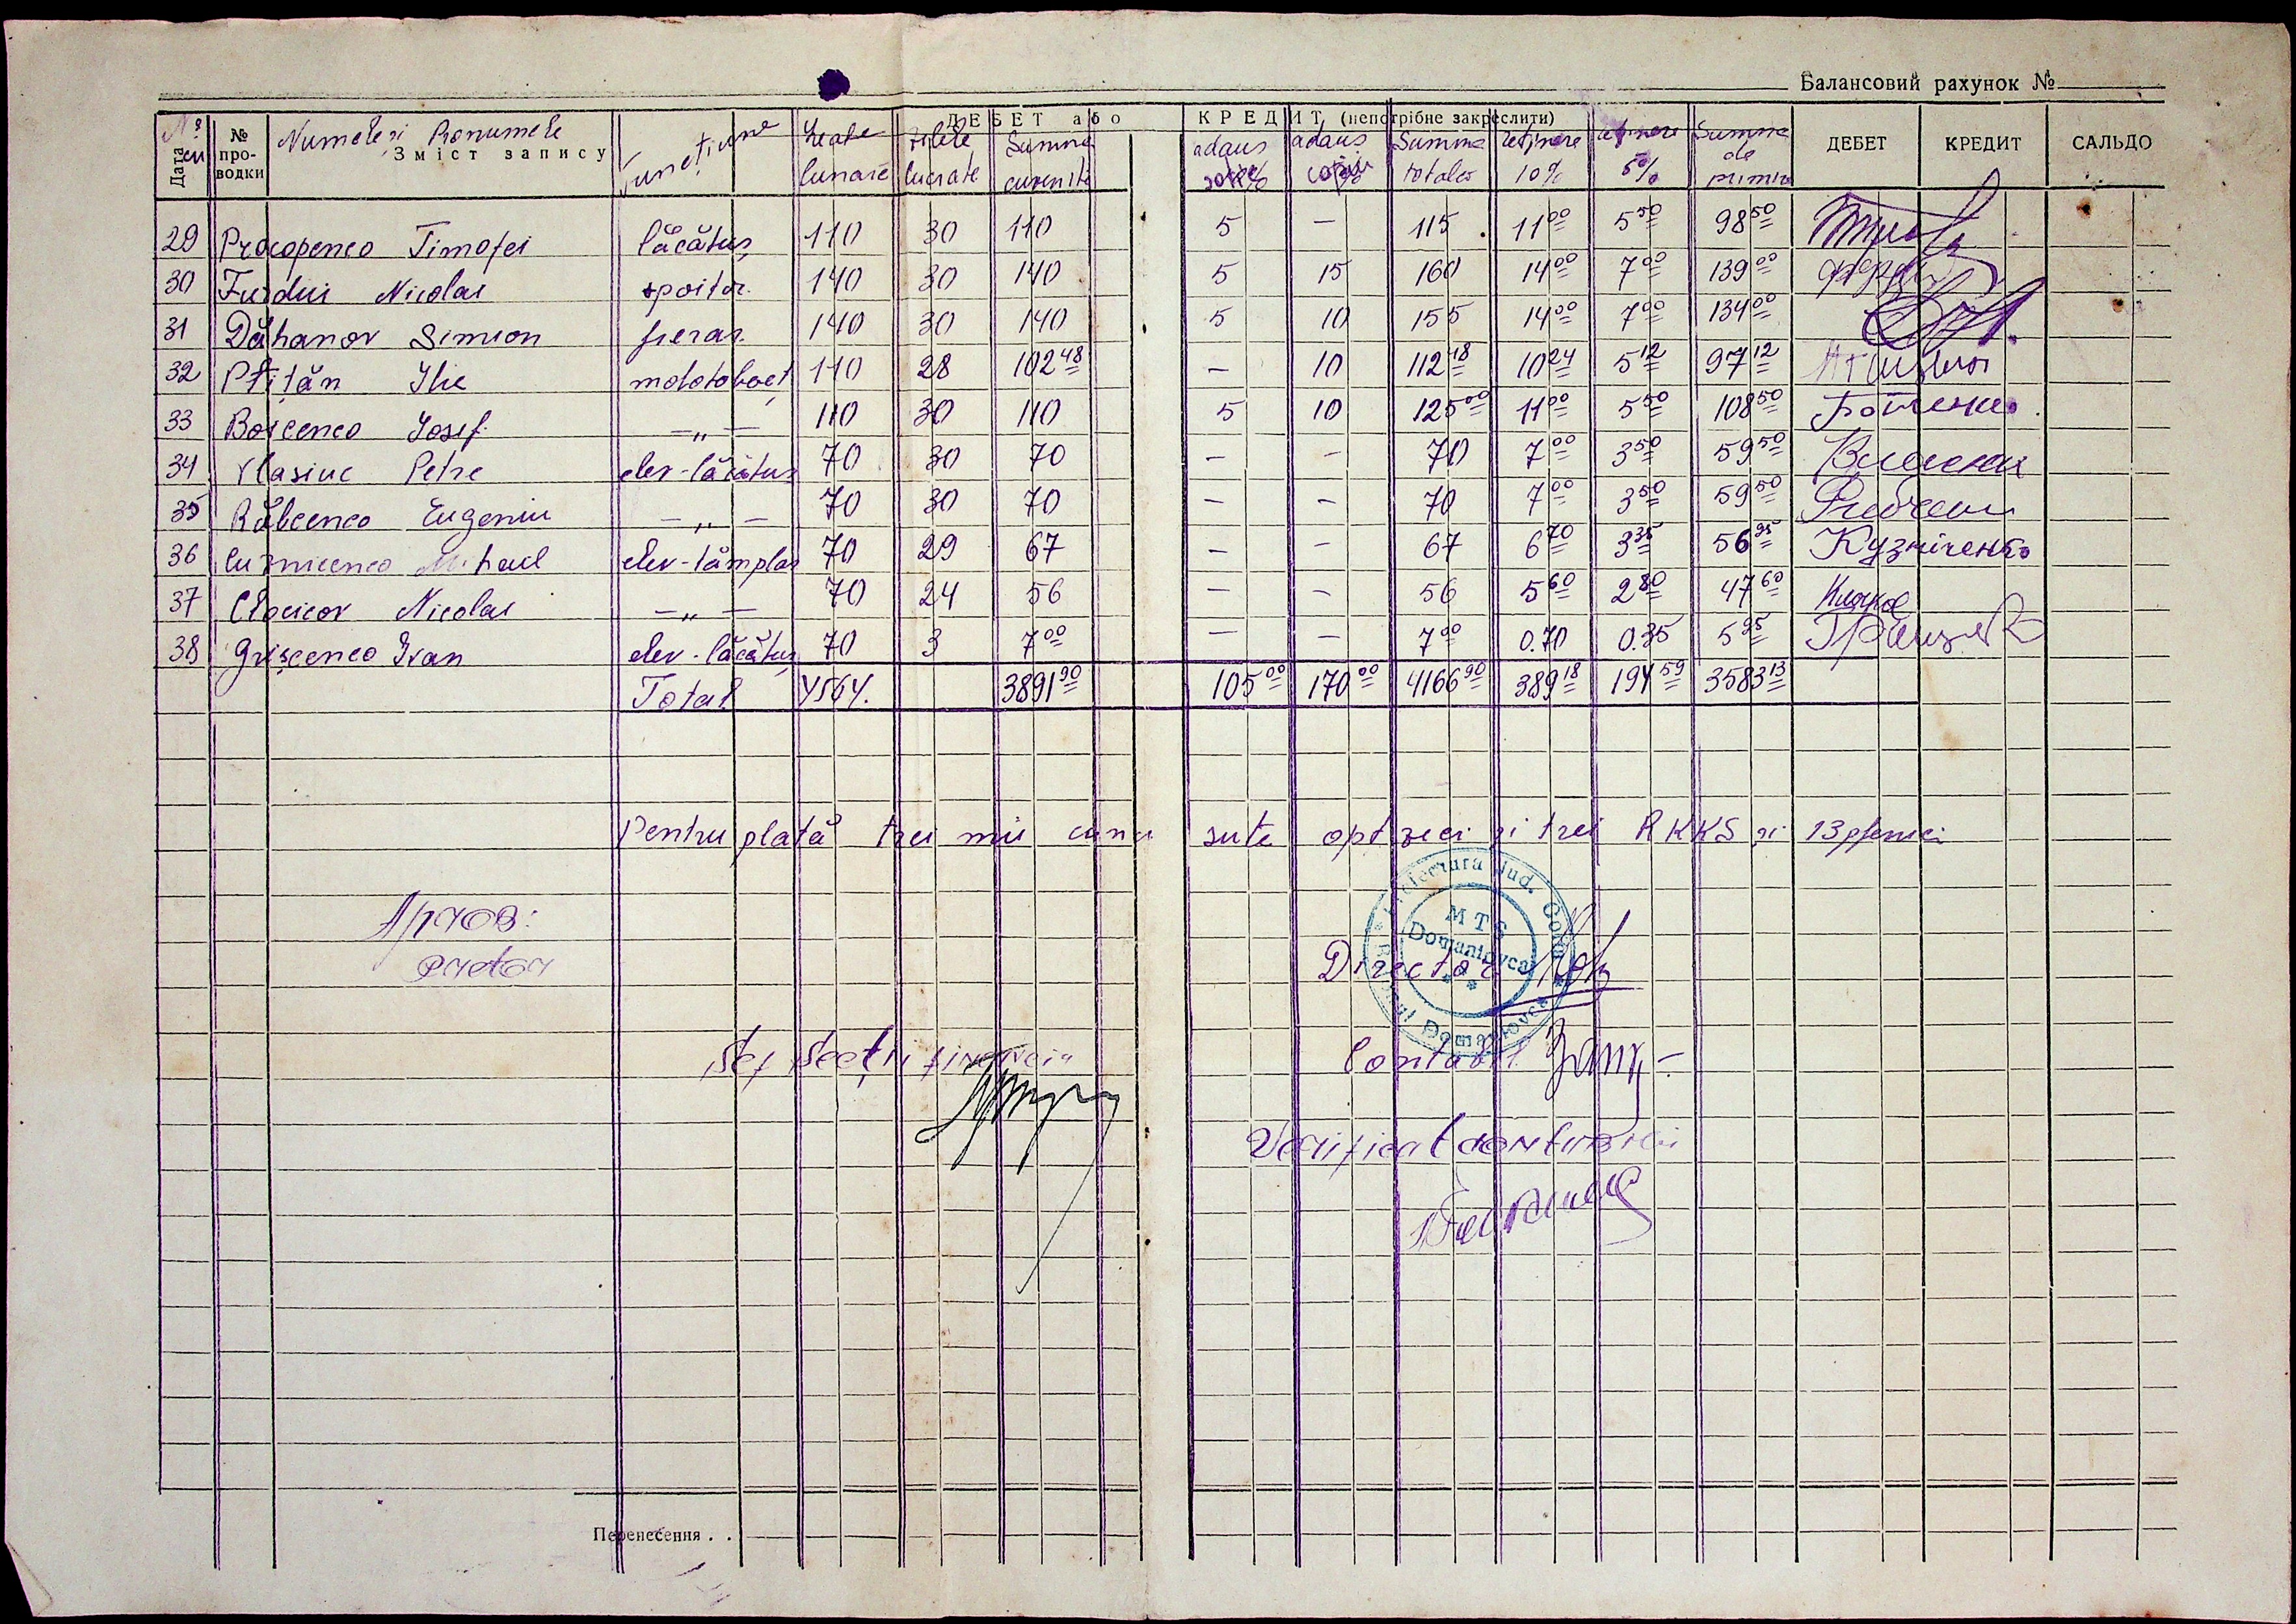 Балансовий рахунок №
№ Дата № проводки Numele și Pronumele Зміст запису Funcțiune Leafa lunară zilele lucrate Summa cuvenită ДЕБЕТ або КРЕДИТ (непотрібне закреслити) adaus soție adaus copii Summa totală reținere 10% reținere 5% Summa de primire ДЕБЕТ КРЕДИТ САЛЬДО
29 Procopenco Timofei lăcătuș 110 30 110 5 — 115 11 00 5 50 98 50
30 Furdui Nicolai spoitor. 140 30 140 5 15 160 14 00 7 00 139 00
31 Dăhanov Simion fierar. 140 30 140 5 10 155 14 00 7 00 134 00
32 Ptițăn Ilie 110 28 102 48 — 10 112 48 10 24 5 12 97 12
33 Boicenco Iosif — " — 110 30 110 5 10 125 00 11 00 5 50 108 50
34 Vlasiuc Petre elev-lăcătuș 70 30 70 — — 70 7 00 3 50 59 50
35 Răbcenco Eugeniu — " — 70 30 70 — — 70 7 00 3 50 59 50
36 Cuznicenco Mihail elev-tâmplar 70 29 67 — — 67 6 70 3 35 56 95 Кузніченко
37 Clocicov Nicolai — " — 70 24 56 — — 56 5 60 2 80 47 60
38 Grișcenco Ivan elev-lăcătuș 70 3 7 00 — — 7 00 0.70 0.35 5 95
Total 4564. 3891 90 105 00 170 00 4166 90 389 18 194 59 3583 13
Pentru plată trei mii cinci sute opt zeci și trei RKKS și 13 pfenici
Prefectura Jud. Golta
MTS
Domaniovca
Aprob:
Pretor
Director
Șef Secții financiar
Contabil
Verificat
Перенесення . .